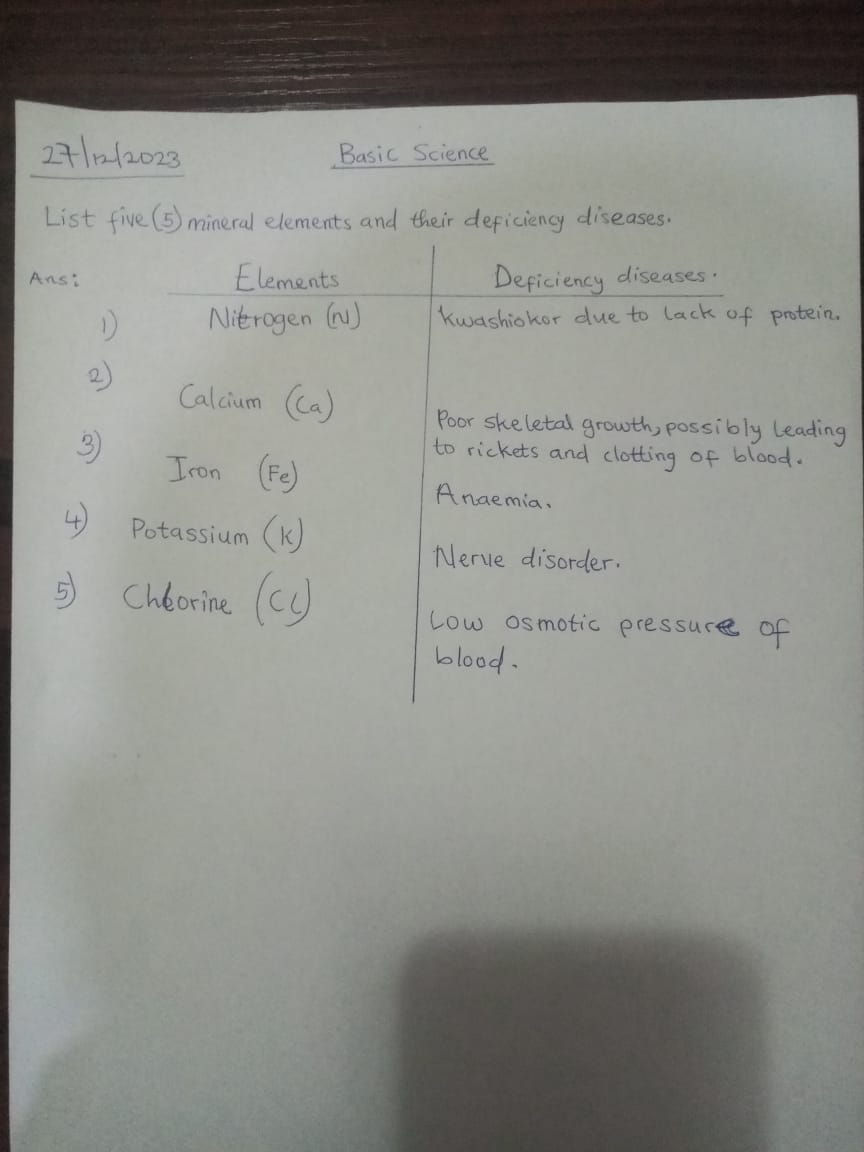 27/12/2023 Basic Science
List five (5) mineral elements and their deficiency diseases.
Ans: Elements Deficiency diseases.
1) Nitrogen (N) Kwashiokor due to lack of protein.
2) Calcium (Ca) Poor skeletal growth, possibly leading
to rickets and clotting of blood.
3) Iron (Fe) Anaemia.
4) Potassium (K) Nerve disorder.
5) Chlorine (Cl) Low osmotic pressure of
blood.